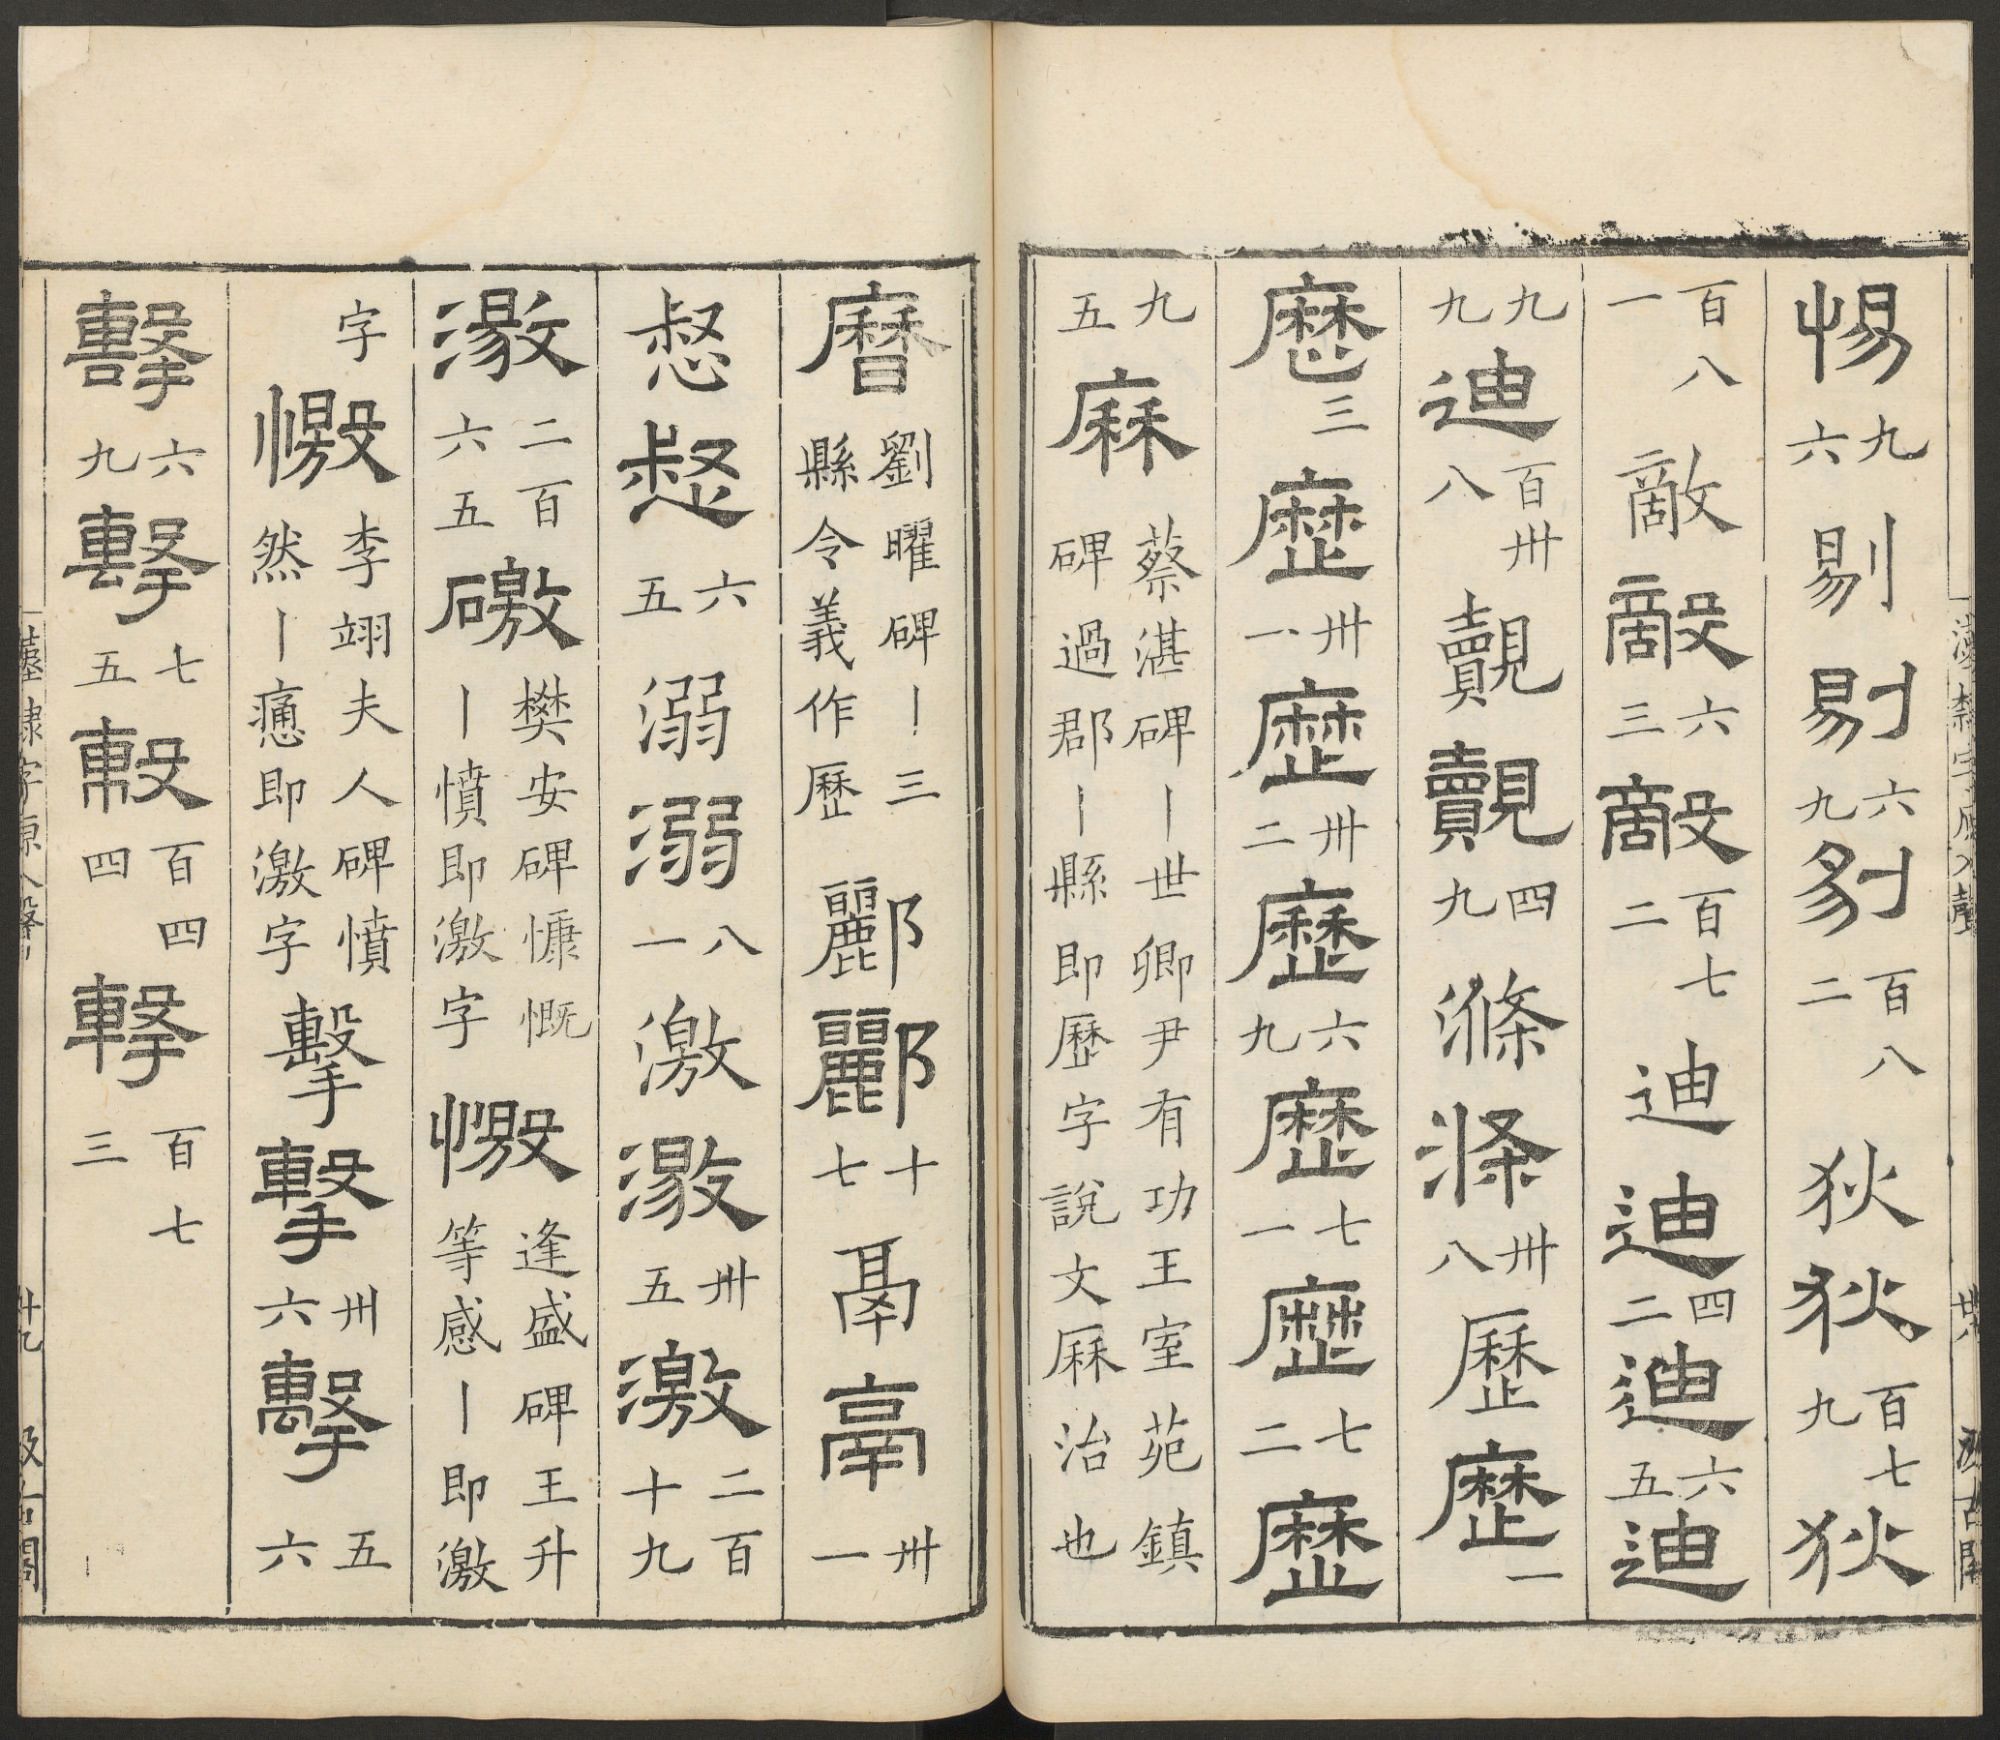 惕九六剔剔六九剔百八二狄狄百七九狄
百八一敵敵六三敵百七二迪迪四二迪六五迪
九九迪百卅八覿覿四九滌滌卅八歷歷一
歷三歷卅一歷卅二歷六九歷七一歷七二歷
九五厤蔡湛碑丨世卿尹有功王室苑鎮碑過郡丨縣即歷字說文厤治也
曆劉曜碑丨三縣令義作歷酈酈十七鬲鬲卅一
惄惄六五溺溺八一激激卅五激二百十九
激二百六五礉樊安碑慷慨丨憤即激字憿逢盛碑王升等感丨即激
字憿李翊夫人碑憤然丨癒即激字擊擊卅六擊五六
擊六九擊七五擊百四四擊百七三
漢隸字源入聲
廿九
汲古閣